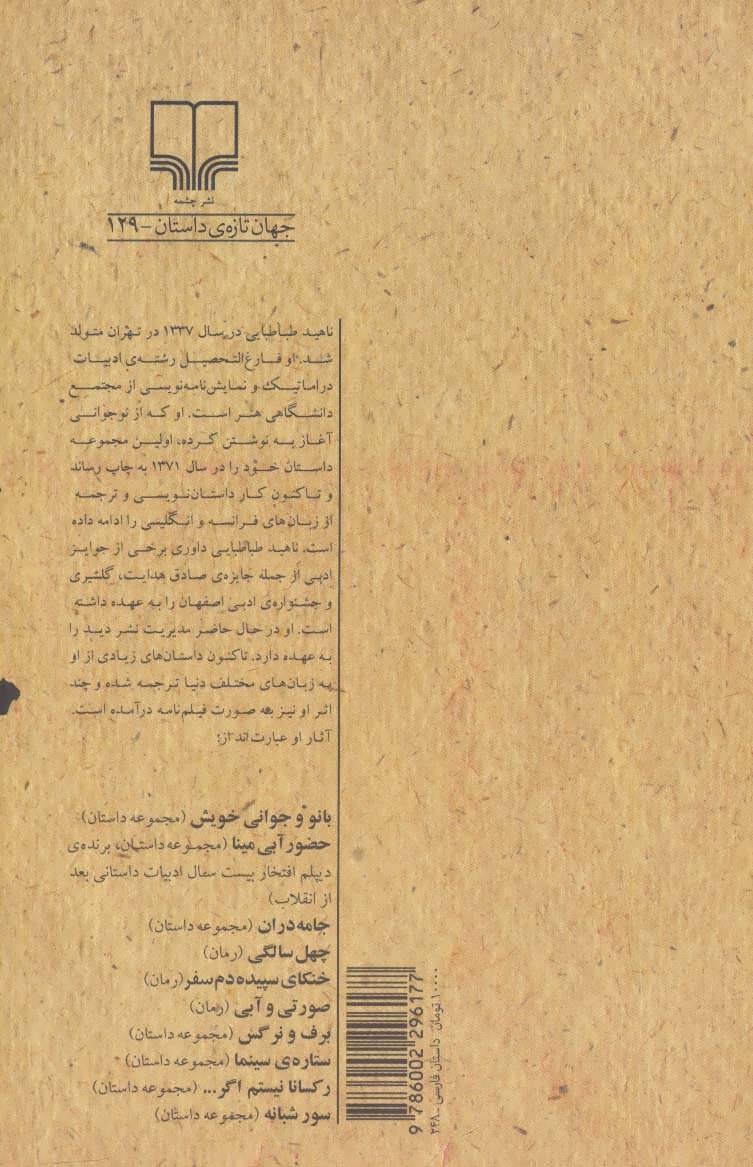 نشر چشمه
جهان تازه‌ی داستان – ۱۲۹
ناهید طباطبایی در سال ۱۳۳۷ در تهران متولد
شد. او فارغ‌التحصیل رشته‌ی ادبیات
دراماتیک و نمایش‌نامه‌نویسی از مجتمع
دانشگاهی هنر است. او که از نوجوانی
آغاز به نوشتن کرده، اولین مجموعه
داستان خود را در سال ۱۳۷۱ به چاپ رساند
و تاکنون کار داستان‌نویسی و ترجمه
از زبان‌های فرانسه و انگلیسی را ادامه داده
است. ناهید طباطبایی داوری برخی از جوایز
ادبی از جمله جایزه‌ی صادق هدایت، گلشیری
و جشنواره‌ی ادبی اصفهان را به عهده داشته
است. او در حال حاضر مدیریت نشر دیبد را
به عهده دارد. تاکنون داستان‌های زیادی از او
به زبان‌های مختلف دنیا ترجمه شده و چند
اثر او نیز به صورت فیلم‌نامه درآمده است.
آثار او عبارت‌اند از:
بانو و جوانی خویش (مجموعه داستان)
حضور آبی مینا (مجموعه داستان، برنده‌ی
دیپلم افتخار بیست سال ادبیات داستانی بعد
از انقلاب)
جامه‌دران (مجموعه داستان)
چهل سالگی (رمان)
خنکای سپیده‌دم سفر (رمان)
صورتی و آبی (رمان)
برف و نرگس (مجموعه داستان)
ستاره‌ی سینما (مجموعه داستان)
رکسانا نیستم اگر... (مجموعه داستان)
سور شبانه (مجموعه داستان)
9 786002 296177
۱۰۰۰۰ تومان داستان فارسی ـ ۲۴۸